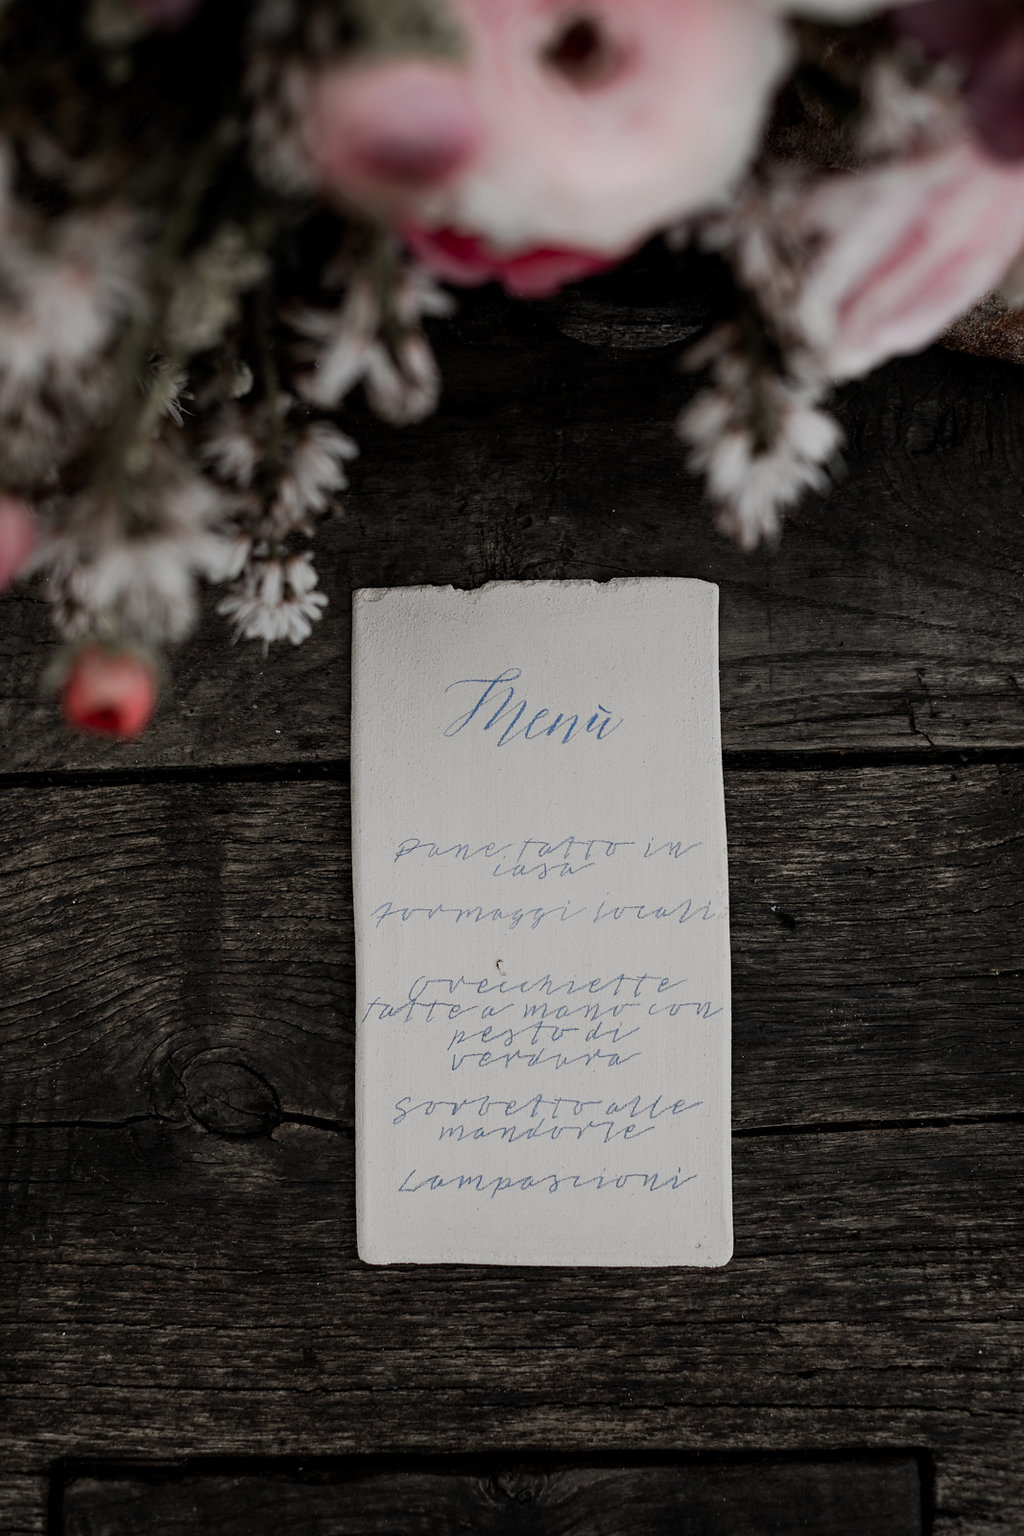 Menù
Pane fatto in
casa
Formaggi locali
Orecchiette
fatte a mano con
pesto di
verdura
Sorbetto alle
mandorle
Lampascioni